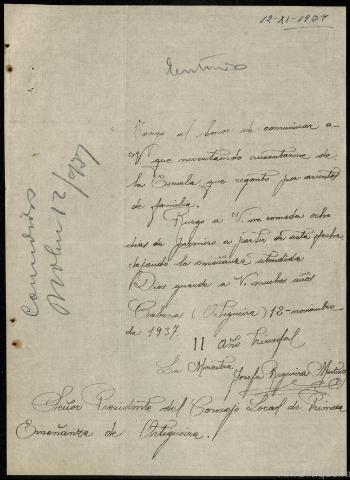 12-XI-1937
Tengo el honor de comunicar a
V. que necesitando ausentarme de
la Escuela que regento por asuntos
de familia.
Ruego a V. me conceda ocho
dias de permiso a partir de esta fecha
dejando la enseñanza atendida
Dios guarde a V. muchos años
Cabanas (Ortigueira) 12-noviembre
de 1937.
II año triunfal
La Maestra
Josefa Regueira
Señor Presidente del Consejo Local de Primera
Enseñanza de Ortigueira.
Concedidos
12/9037